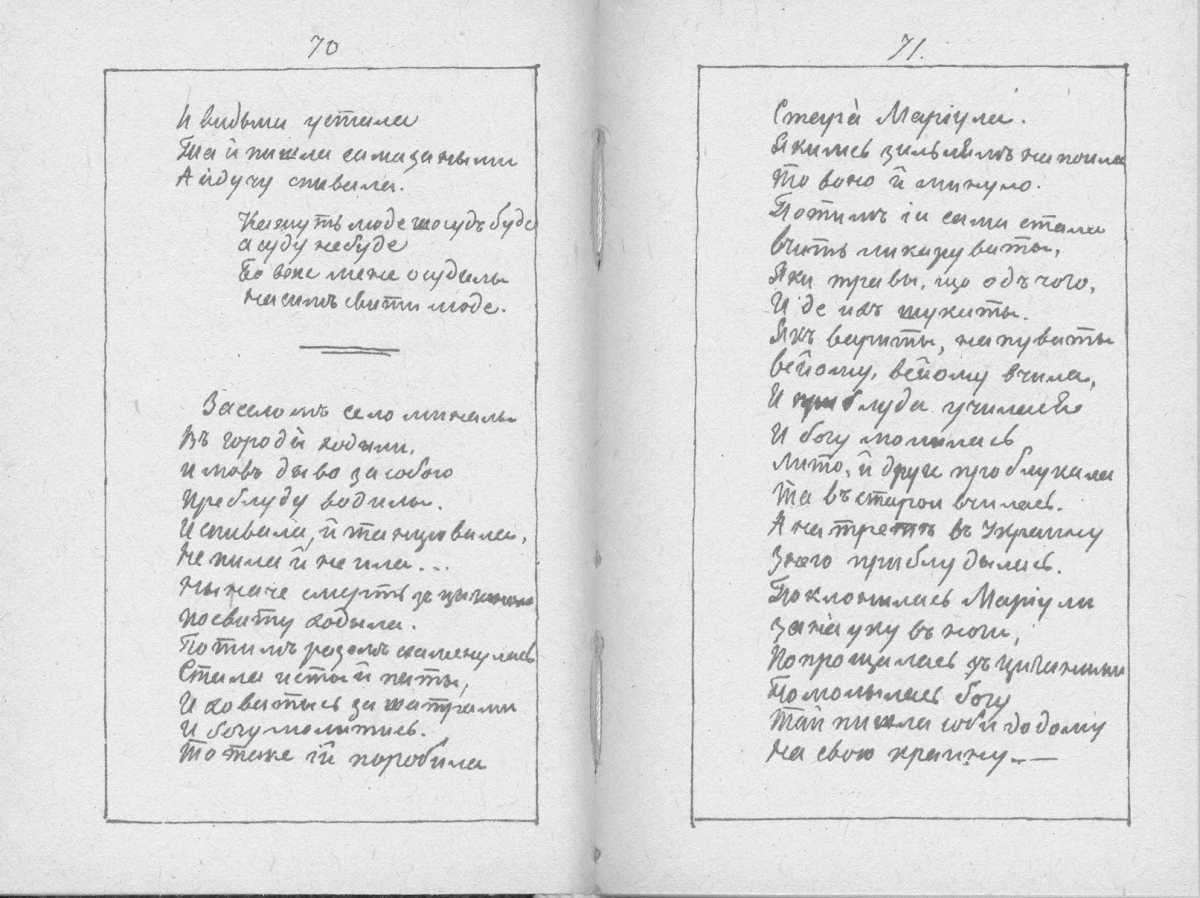 70
И видьма устала
Та й пишла самазаными
А идучу спивала.
Кажуть люде шосудъ буде
а суду небуде
Бо вже мене осудылы
насимъ свити люде.
Заселомъ село миналы
Въ городы ходыли,
и мовъ дыво засобою
Преблуду водилы.
И спивала, й танцювала,
Не пила й не ила...
Ныначе смерть зъ цыганами
посвиту ходыла.
Потимъ разомъ схаменулась
Стала исты й питы,
И ховатысь за шатрами
И богу молитись.
То таке ій поробила
71.
Стара Маріула.
Якимсь зильлямъ напоила
То воно й минуло.
Потимъ іи сама стала
вчить ликарувати,
Яки травы, що одъ чого,
И де ихъ шукаты.
Якъ варыты, напуваты
всйому, всйому вчила,
И приблуда училась
И богу молилась
Лито, й друге проблукала
Та въстарои вчилась.
А на третье въ Украину
Знего приблудылась.
Поклонилась Маріули
За науку въ ноги,
Попрощалась зъ циганами
Помолылась богу
Тай пишла соби додому
На свою краину. —